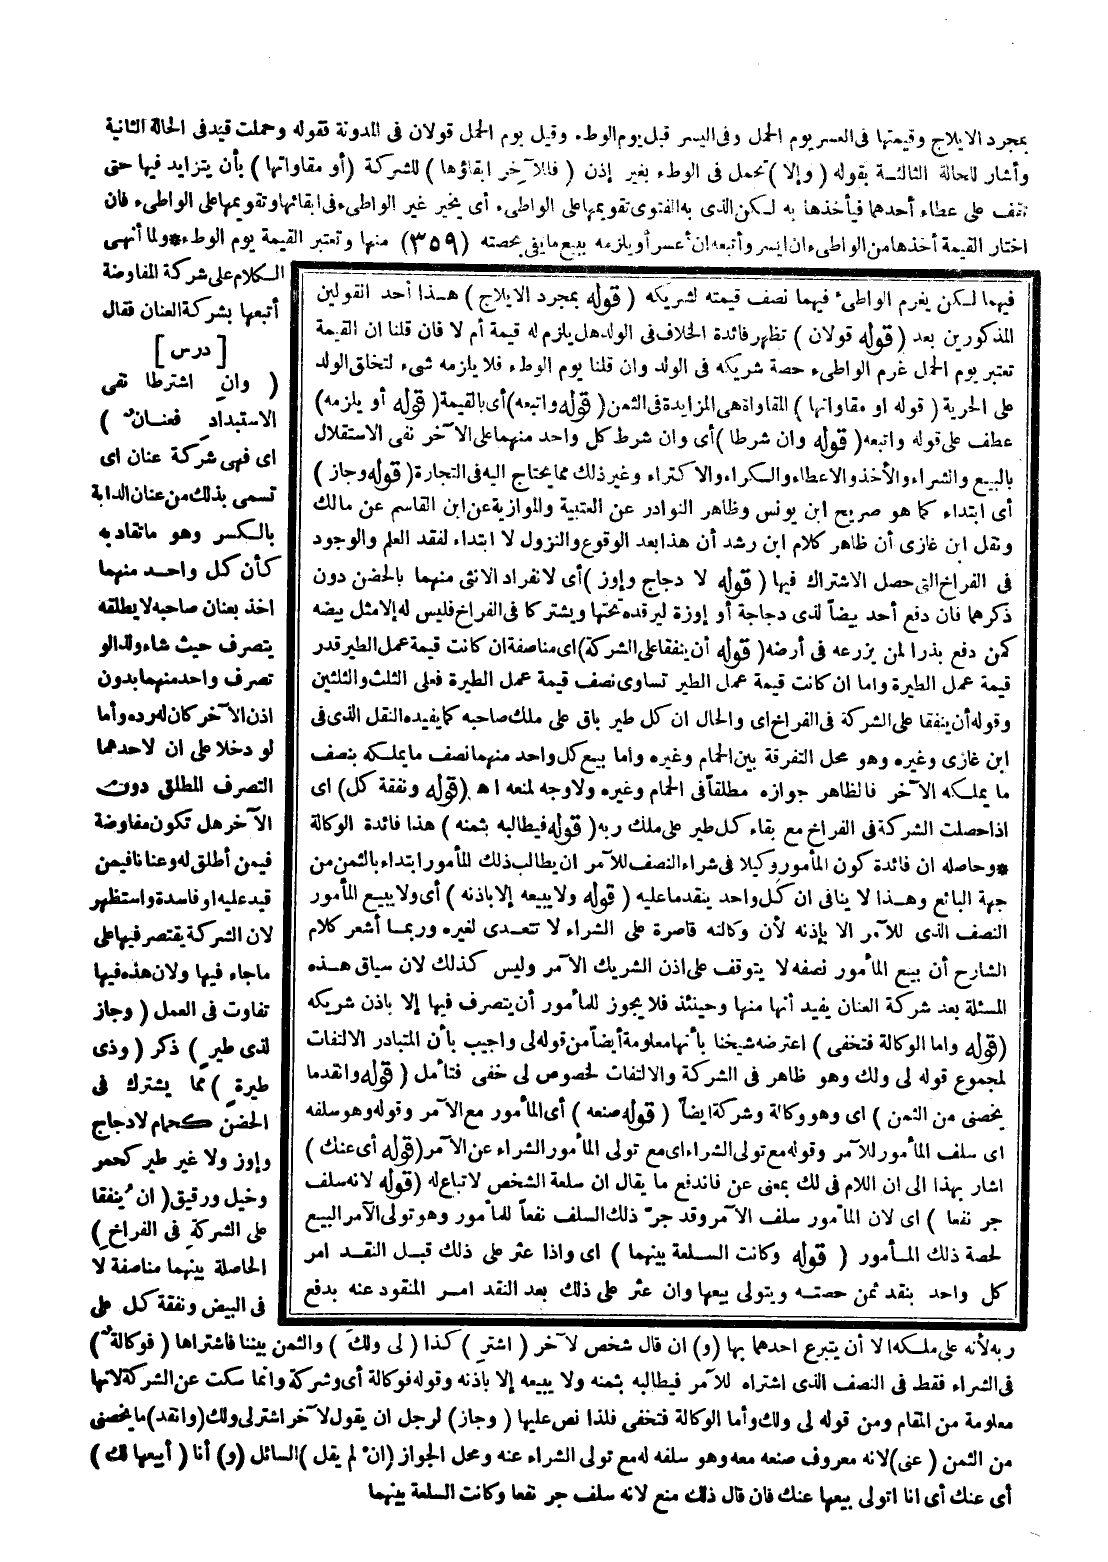 بمجرد الايلاج وقيمتها فى العسر يوم الحمل وفى اليسر قبل يوم الوطء وقيل يوم الحمل قولان فى المدونة فقوله وحملت قيد فى الحالة الثانية
وأشار للحالة الثالثة بقوله ( وإلا ) تحمل فى الوطء بغير إذن ( فللآخر ابقاؤها ) للشركة ( أو مقاواتها ) بأن يتزايد فيها حتى
تقف على عطاء أحدهما فيأخذها به لكن الذى به الفتوى تقويمها على الواطىء أى يخير غير الواطىء فى ابقائها وتقويمها على الواطىء فان
اختار القيمة أخذها من الواطىء ان ايسر وأتبعه ان أعسر أو يلزمه ببيع ما يفى بحصته (٣٥٩) منها وتعتبر القيمة يوم الوطء * ولما أنهى
الكلام على شركة المفاوضة
أتبعها بشركة العنان فقال
[ درس ]
( وان اشترطا نفى
الاستبداد فعنان )
اى فهى شركة عنان اى
تسمى بذلك من عنان الدابة
بالكسر وهو ما تقاد به
كأن كل واحد منهما
اخذ بعنان صاحبه لا يطلقه
يتصرف حيث شاء ولذا لو
تصرف واحد منهما بدون
اذن الآخر كان له رده وأما
لو دخلا على ان لاحدهما
التصرف المطلق دون
الآخر هل تكون مفاوضة
فيمن أطلق له وعنانا فيمن
قيد عليه او فاسدة واستظهر
لان الشركة يقتصر فيها على
ما جاء فيها ولان هذه فيها
تفاوت فى العمل ( وجاز
لذى طير ) ذكر ( وذى
طيرة ) مما يشترك فى
الحضن كحمام لا دجاج
وإوز ولا غير طير كحمر
وخيل ورقيق ( ان ينفقا
على الشركة فى الفراخ )
الحاصلة بينهما مناصفة لا
فى البيض ونفقة كل على
فيهما لكن يغرم الواطىء فيهما نصف قيمته لشريكه ( قوله بمجرد الايلاج ) هذا أحد القولين
المذكورين بعد ( قوله قولان ) تظهر فائدة الخلاف فى الولد هل يلزم له قيمة أم لا فان قلنا ان القيمة
تعتبر يوم الحمل غرم الواطىء حصة شريكه فى الولد وان قلنا يوم الوطء فلا يلزمه شىء لتخلق الولد
على الحرية ( قوله او مقاواتها ) المقاواة هى المزايدة فى الثمن ( قوله واتبعه ) أى بالقيمة ( قوله أو يلزمه )
عطف على قوله واتبعه ( قوله وان شرطا ) أى وان شرط كل واحد منهما على الآخر نفى الاستقلال
بالبيع والشراء والأخذ والاعطاء والكراء والاكتراء وغير ذلك مما يحتاج اليه فى التجارة ( قوله وجاز )
أى ابتداء كما هو صريح ابن يونس وظاهر النوادر عن العتبية والموازية عن ابن القاسم عن مالك
ونقل ابن غازى أن ظاهر كلام ابن رشد أن هذا بعد الوقوع والنزول لا ابتداء لفقد العلم والوجود
فى الفراخ التى حصل الاشتراك فيها ( قوله لا دجاج وإوز ) أى لانفراد الانثى منهما بالحضن دون
ذكرهما فان دفع أحد بيضاً لذى دجاجة أو إوزة ليرقده تحتها ويشتركا فى الفراخ فليس له إلا مثل بيضه
كمن دفع بذرا لمن يزرعه فى أرضه ( قوله أن ينفقا على الشركة ) اى مناصفة ان كانت قيمة عمل الطير قدر
قيمة عمل الطيرة واما ان كانت قيمة عمل الطير تساوى نصف قيمة عمل الطيرة فعلى الثلث والثلثين
وقوله أن ينفقا على الشركة فى الفراخ اى والحال ان كل طير باق على ملك صاحبه كما يفيده النقل الذى فى
ابن غازى وغيره وهو محل التفرقة بين الحمام وغيره واما بيع كل واحد منهما نصف ما يملكه بنصف
ما يملكه الآخر فالظاهر جوازه مطلقاً فى الحمام وغيره ولا وجه لمنعه اه ( قوله ونفقة كل ) اى
اذا حصلت الشركة فى الفراخ مع بقاء كل طير على ملك ربه ( قوله فيطالبه بثمنه ) هذا فائدة الوكالة
* وحاصله ان فائدة كون المأمور وكيلا فى شراء النصف للآمر ان يطالب ذلك المأمور ابتداء بالثمن من
جهة البائع وهذا لا ينافى ان كل واحد ينقد ما عليه ( قوله ولا يبيعه إلا باذنه ) أى ولا يبيع المأمور
النصف الذى للآمر الا بإذنه لأن وكالته قاصرة على الشراء لا تتعدى لغيره وربما أشعر كلام
الشارح أن بيع المأمور نصفه لا يتوقف على اذن الشريك الآمر وليس كذلك لان سياق هذه
المسئلة بعد شركة العنان يفيد أنها منها وحينئذ فلا يجوز للمأمور أن يتصرف فيها إلا باذن شريكه
( قوله واما الوكالة فتخفى ) اعترضه شيخنا بأنها معلومة أيضاً من قوله لى واجيب بأن المتبادر الالتفات
لمجموع قوله لى ولك وهو ظاهر فى الشركة والالتفات لخصوص لى خفى فتأمل ( قوله وانقد ما
يخصنى من الثمن ) اى وهو وكالة وشركة ايضاً ( قوله صنعه ) أى المأمور مع الآمر وقوله وهو سلفه
اى سلف المأمور للآمر وقوله مع تولى الشراء اى مع تولى المأمور الشراء عن الآمر ( قوله أى عنك )
اشار بهذا الى ان اللام فى لك بمعنى عن فاندفع ما يقال ان سلعة الشخص لا تباع له ( قوله لانه سلف
جر نفعا ) اى لان المأمور سلف الآمر وقد جر ذلك السلف نفعاً للمأمور وهو تولى الآمر البيع
لحصة ذلك المأمور ( قوله وكانت السلعة بينهما ) اى واذا عثر على ذلك قبل النقد امر
كل واحد بنقد ثمن حصته ويتولى بيعها وان عثر على ذلك بعد النقد امر المنقود عنه بدفع
ربه لأنه على ملكه الا أن يتبرع احدهما بها ( و ) ان قال شخص لآخر ( اشتر ) كذا ( لى ولك ) والثمن بيننا فاشتراها ( فوكالة )
فى الشراء فقط فى النصف الذى اشتراه للآمر فيطالبه بثمنه ولا يبيعه إلا باذنه وقوله فوكالة أى وشركة وانما سكت عن الشركة لانها
معلومة من المقام ومن قوله لى ولك وأما الوكالة فتخفى فلذا نص عليها ( وجاز ) لرجل ان يقول لآخر اشتر لى ولك ( وانقد ) ما يخصنى
من الثمن ( عنى ) لانه معروف صنعه معه وهو سلفه له مع تولى الشراء عنه ومحل الجواز ( ان لم يقل ) السائل ( و ) أنا ( أبيعها لك )
أى عنك أى انا اتولى بيعها عنك فان قال ذلك منع لانه سلف جر نفعا وكانت السلعة بينهما